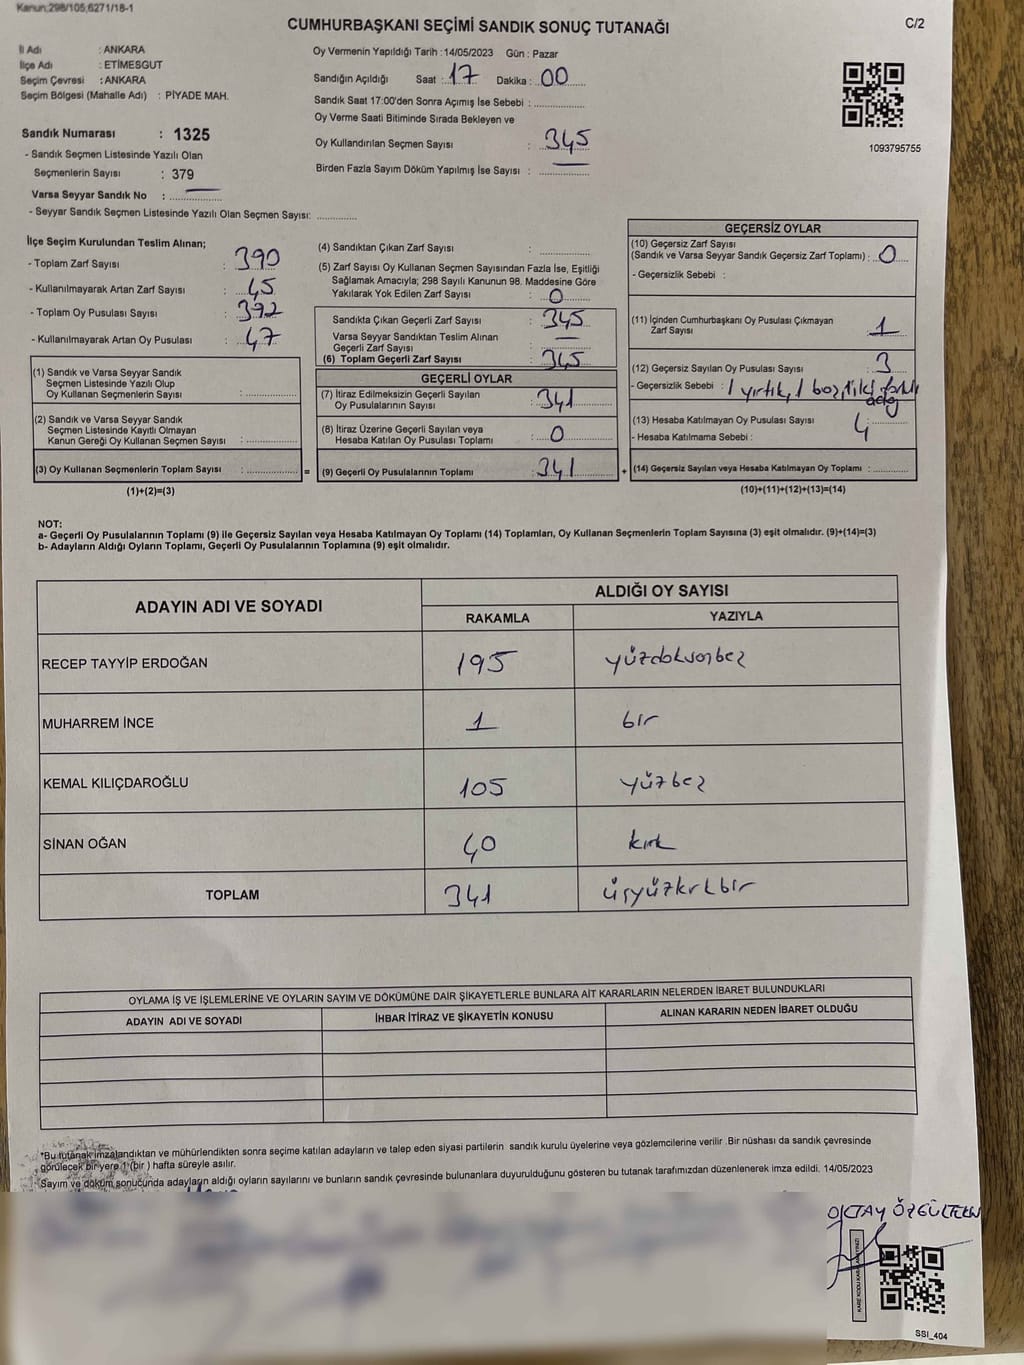 Kanun;298/105;6271/18-1
CUMHURBAŞKANI SEÇİMİ SANDIK SONUÇ TUTANAĞI
C/2
İl Adı : ANKARA
İlçe Adı : ETİMESGUT
Seçim Çevresi : ANKARA
Seçim Bölgesi (Mahalle Adı) : PİYADE MAH.
Oy Vermenin Yapıldığı Tarih :14/05/2023 Gün : Pazar
Sandığın Açıldığı Saat : 17 Dakika : 00
Sandık Saat 17:00'den Sonra Açımış İse Sebebi :
Oy Verme Saati Bitiminde Sırada Bekleyen ve
Oy Kullandırılan Seçmen Sayısı : 345
Birden Fazla Sayım Döküm Yapılmış İse Sayısı :
1093795755
Sandık Numarası : 1325
- Sandık Seçmen Listesinde Yazılı Olan
Seçmenlerin Sayısı : 379
Varsa Seyyar Sandık No :
- Seyyar Sandık Seçmen Listesinde Yazılı Olan Seçmen Sayısı:
İlçe Seçim Kurulundan Teslim Alınan;
- Toplam Zarf Sayısı : 390
- Kullanılmayarak Artan Zarf Sayısı : 45
- Toplam Oy Pusulası Sayısı : 392
- Kullanılmayarak Artan Oy Pusulası : 47
(1) Sandık ve Varsa Seyyar Sandık
Seçmen Listesinde Yazılı Olup
Oy Kullanan Seçmenlerin Sayısı :
(2) Sandık ve Varsa Seyyar Sandık
Seçmen Listesinde Kayıtlı Olmayan
Kanun Gereği Oy Kullanan Seçmen Sayısı :
(3) Oy Kullanan Seçmenlerin Toplam Sayısı : =
(1)+(2)=(3)
(4) Sandıktan Çıkan Zarf Sayısı :
(5) Zarf Sayısı Oy Kullanan Seçmen Sayısından Fazla İse, Eşitliği
Sağlamak Amacıyla; 298 Sayılı Kanunun 98. Maddesine Göre
Yakılarak Yok Edilen Zarf Sayısı : 0
Sandıkta Çıkan Geçerli Zarf Sayısı : 345
Varsa Seyyar Sandıktan Teslim Alınan
Geçerli Zarf Sayısı :
(6) Toplam Geçerli Zarf Sayısı : 345
GEÇERLİ OYLAR
(7) İtiraz Edilmeksizin Geçerli Sayılan
Oy Pusulalarının Sayısı : 341
(8) İtiraz Üzerine Geçerli Sayılan veya
Hesaba Katılan Oy Pusulası Toplamı : 0
(9) Geçerli Oy Pusulalarının Toplamı : 341 +
GEÇERSİZ OYLAR
(10) Geçersiz Zarf Sayısı
(Sandık ve Varsa Seyyar Sandık Geçersiz Zarf Toplamı) : 0
- Geçersizlik Sebebi :
(11) İçinden Cumhurbaşkanı Oy Pusulası Çıkmayan
Zarf Sayısı : 1
(12) Geçersiz Sayılan Oy Pusulası Sayısı : 3
- Geçersizlik Sebebi : 1 yırtık, 1 boş, 1 iki farklı
aday
(13) Hesaba Katılmayan Oy Pusulası Sayısı : 4
- Hesaba Katılmama Sebebi :
(14) Geçersiz Sayılan veya Hesaba Katılmayan Oy Toplamı :
(10)+(11)+(12)+(13)=(14)
NOT:
a- Geçerli Oy Pusulalarının Toplamı (9) ile Geçersiz Sayılan veya Hesaba Katılmayan Oy Toplamı (14) Toplamları, Oy Kullanan Seçmenlerin Toplam Sayısına (3) eşit olmalıdır. (9)+(14)=(3)
b- Adayların Aldığı Oyların Toplamı, Geçerli Oy Pusulalarının Toplamına (9) eşit olmalıdır.
ADAYIN ADI VE SOYADI
ALDIĞI OY SAYISI
RAKAMLA YAZIYLA
RECEP TAYYİP ERDOĞAN 195 yüzdoksanbeş
MUHARREM İNCE 1 bir
KEMAL KILIÇDAROĞLU 105 yüzbeş
SİNAN OĞAN 40 kırk
TOPLAM 341 üçyüzkırkbir
OYLAMA İŞ VE İŞLEMLERİNE VE OYLARIN SAYIM VE DÖKÜMÜNE DAİR ŞİKAYETLERLE BUNLARA AİT KARARLARIN NELERDEN İBARET BULUNDUKLARI
ADAYIN ADI VE SOYADI İHBAR İTİRAZ VE ŞİKAYETİN KONUSU ALINAN KARARIN NEDEN İBARET OLDUĞU
*Bu tutanak imzalandıktan ve mühürlendikten sonra seçime katılan adayların ve talep eden siyasi partilerin sandık kurulu üyelerine veya gözlemcilerine verilir .Bir nüshası da sandık çevresinde
görülecek bir yere 1 (bir ) hafta süreyle asılır.
Sayım ve döküm sonucunda adayların aldığı oyların sayılarını ve bunların sandık çevresinde bulunanlara duyurulduğunu gösteren bu tutanak tarafımızdan düzenlenerek imza edildi. 14/05/2023
OKTAY ÖZGÜLTEKİN
SSI_404